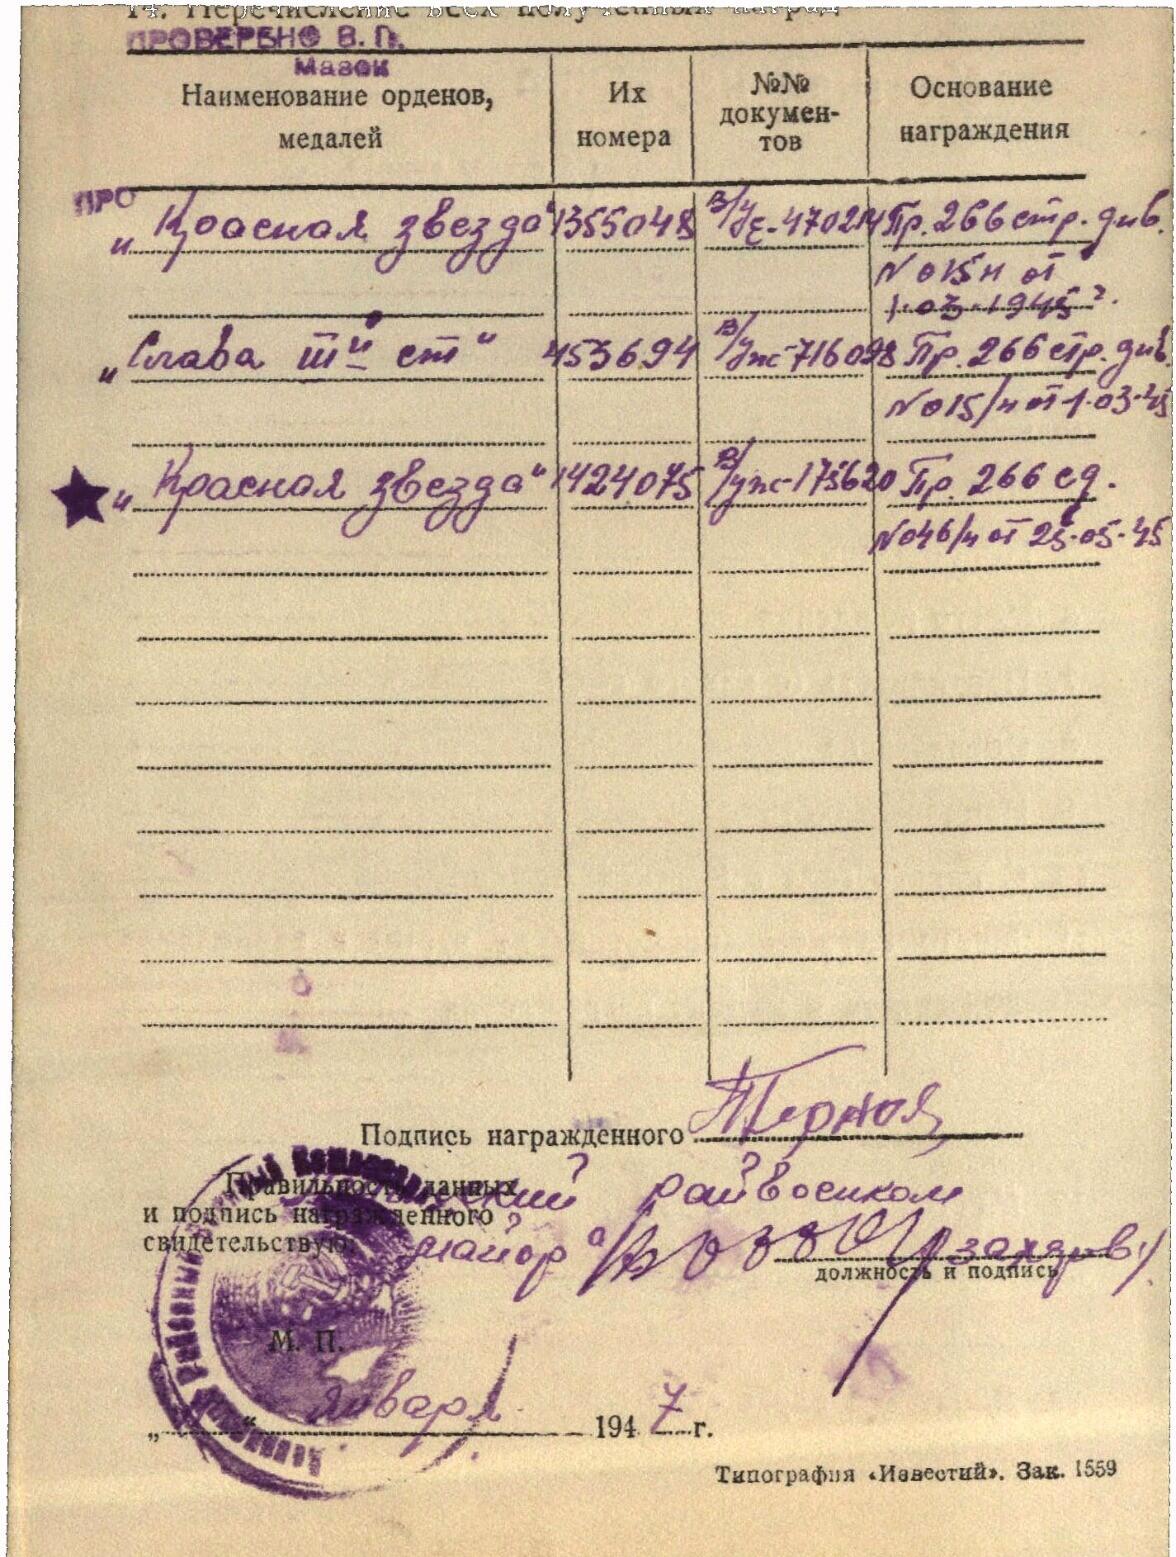 14. Перечисление всех полученных наград
ПРОВЕРЕНО В. П.
Мазок
Наименование орденов, медалей
Их номера
№№ докумен-
тов
Основание награждения
ПРО
„Красная звезда“ 1355048 В/Уе-470214 Пр. 266 стр. див.
N 015 н от
1.03.1945 г.
„Слава IIIй ст“ 453694 В/уж-716098 Пр. 266 стр. див.
N 015/н от 1.03.45
„Красная звезда“ 1424075 В/уж-175620 Пр. 266 сд.
N 046/н от 25.05.45
Подпись награжденного
Правильность данных райвоенком
и подпись награжденного
свидетельствую: майор а/с /захаров/
должность и подпись
М. П.
„ “ января 1947 г.
Типография «Известий». Зак. 1559